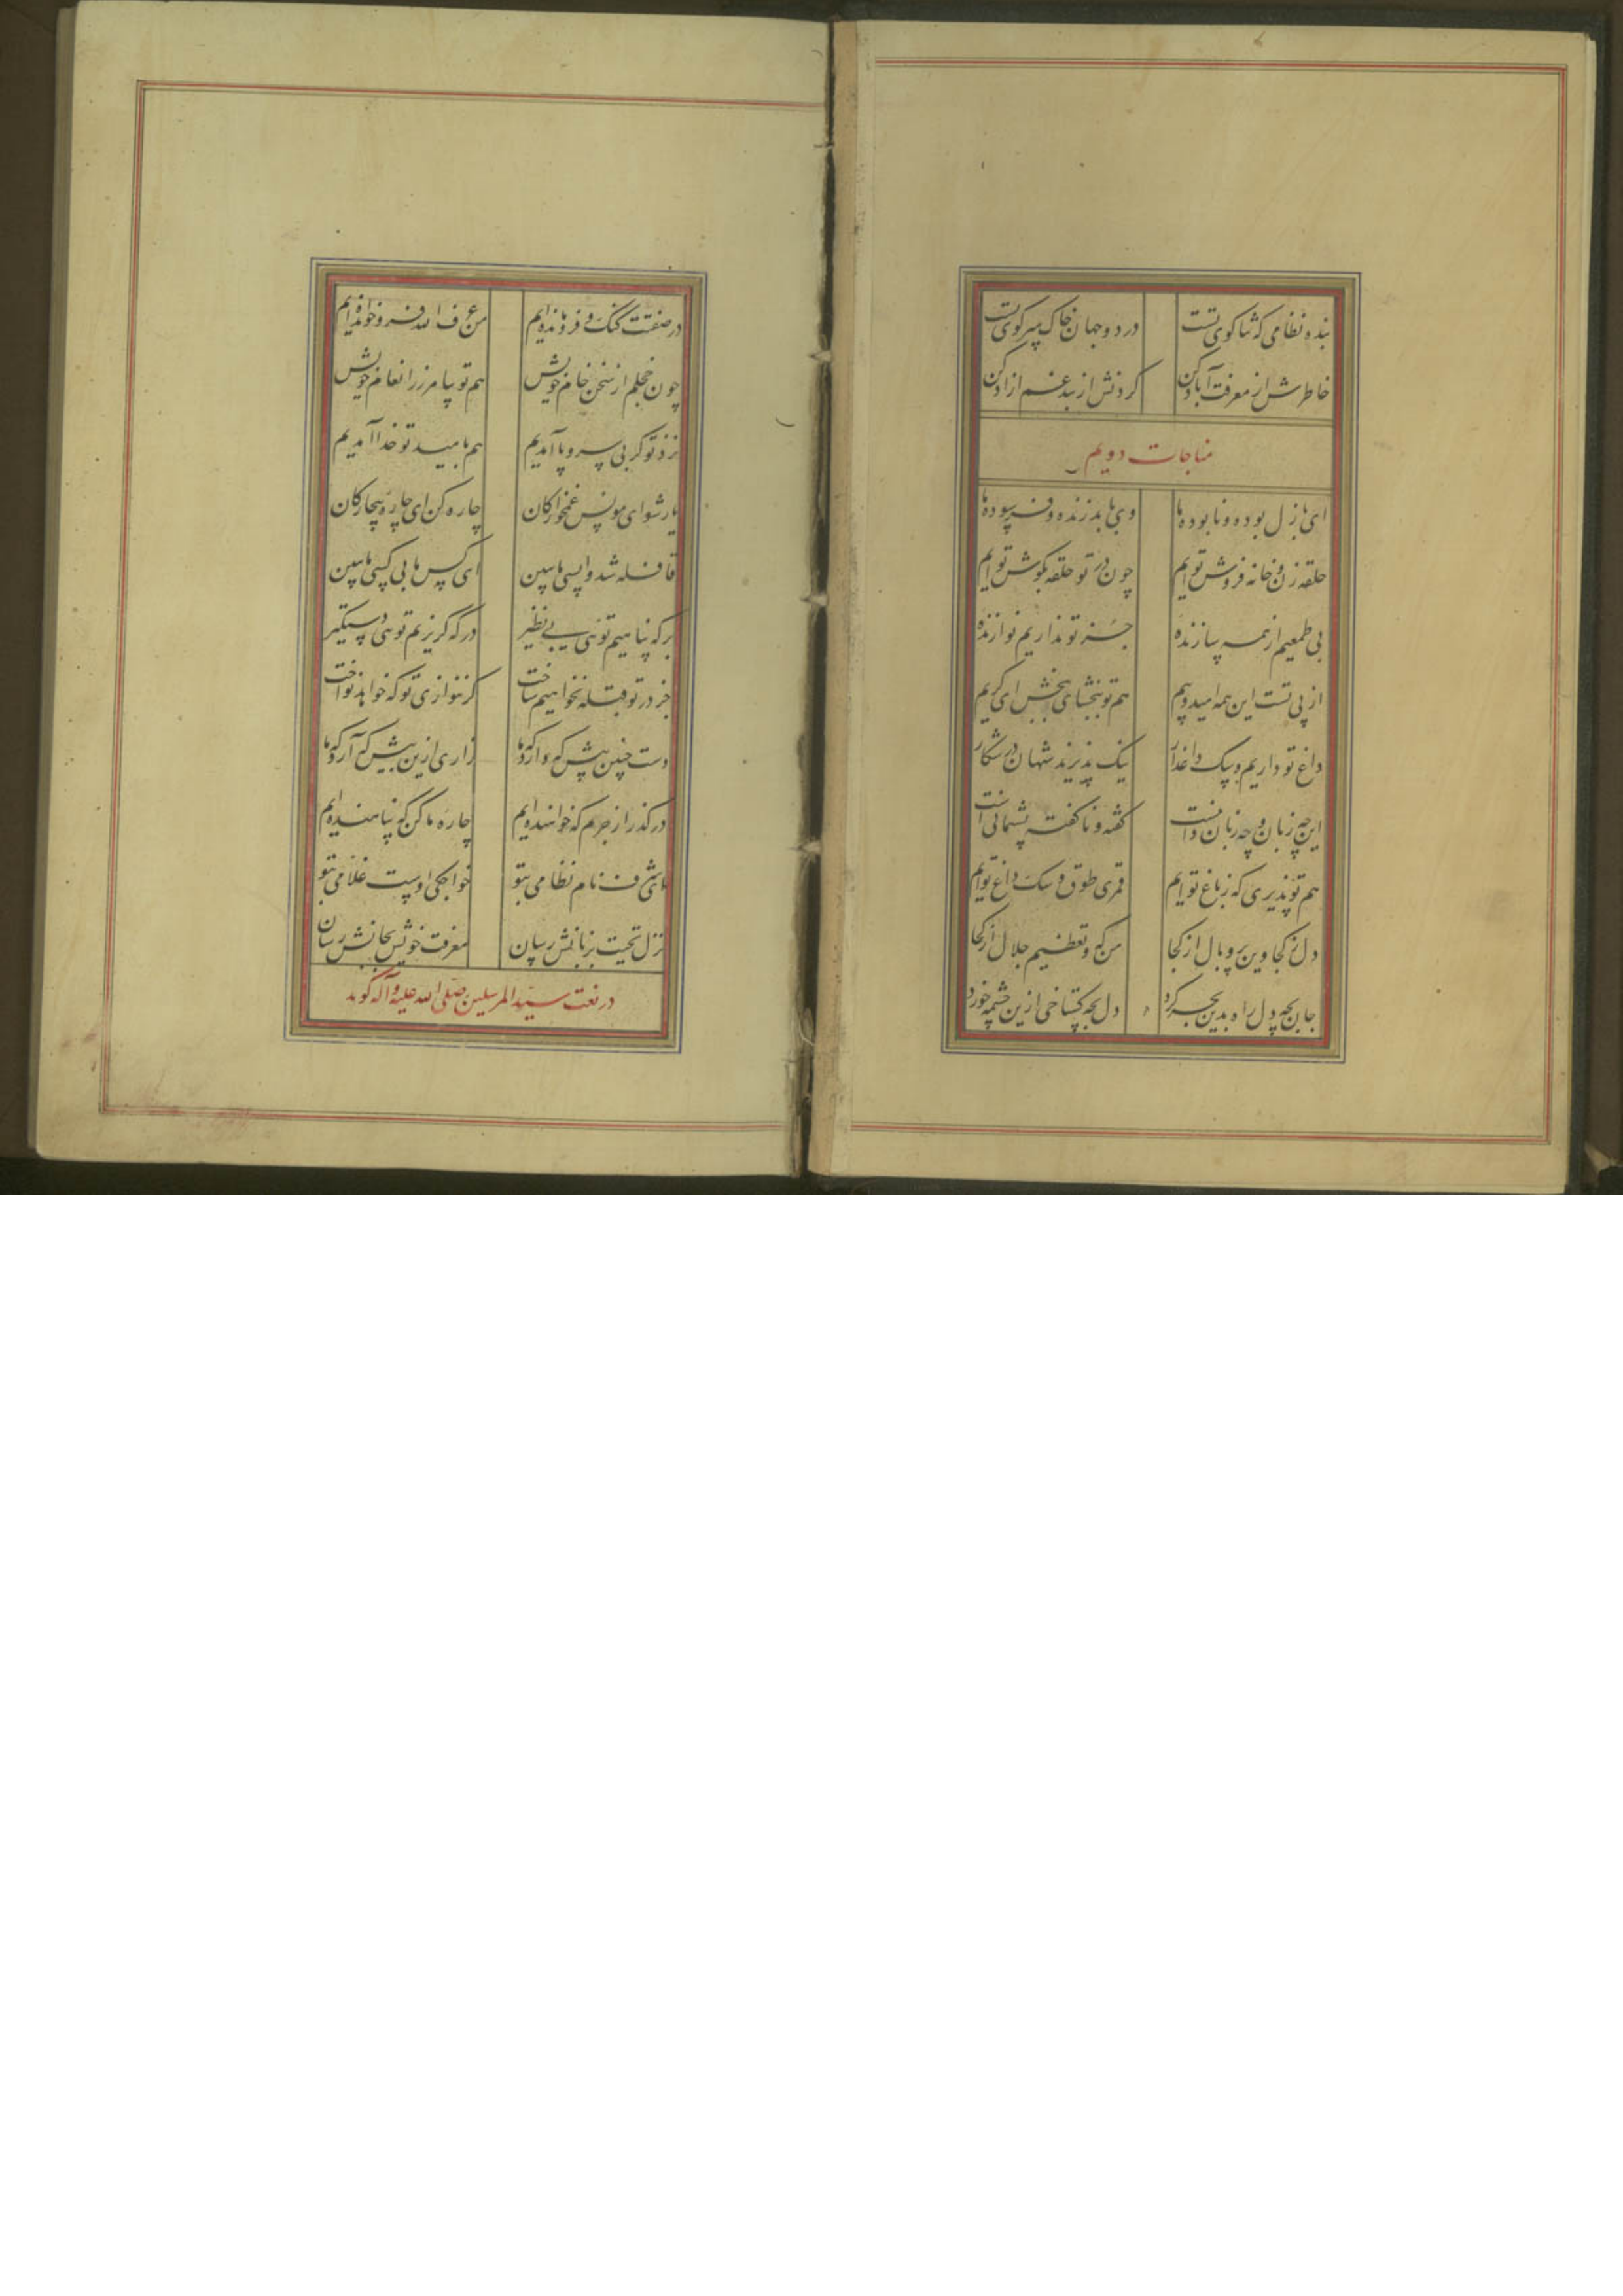 بنده نظامی که ثنا کوی تست در دو جهان خاک سر کوی تست
خاطرش از معرفت آباد کن کردنش از بند غم ازاد کن
مناجات دویم
ای بازل بوده و نابوده ما وی بابد زنده و فرسوده ما
حلقه زن و خانه فروش توایم چون در تو حلقه بکوش توایم
بی طمعیم از همه سازنده جز تو نداریم نوازنده
از پی تست این همه امید و بیم هم تو ببخشای ببخش ای کریم
داغ تو داریم و سک داغدار نیک پذیرند شهان در شکار
این چه زبان و چه زبان دانیست کفته و ناکفته پشیمانی است
هم تو پذیری که ز باغ توایم قمری طوق و سک داغ توایم
دل ز کجا وین پر و بال از کجا من که و تعظیم جلال از کجا
جان بچه دل راه بدین بحر کرد دل بچه کستاخی ازین چشمه خورد
در صفتت کنک و فرو مانده ایم من عرف الله فرو خوانده ایم
چون خجلم از سخن خام خویش هم تو بیامرز ز انعام خویش
نزد تو کر بی سر و پا آمدیم هم بامید تو خدا آمدیم
یار شو ای مونس غمخوارکان چاره کن ای چاره بیچارکان
قافله شد واپسی ما ببین ای کس ما بی کسی ما ببین
بر که پناهیم توئی بی نظیر در که کریزیم توئی دستکیر
جز در تو قبله نخواهیم ساخت کر ننوازی تو که خواهد نواخت
دست چنین پیش که دارد که ما زاری ازین بیش که آرد که ما
درکذر از جرم که خواهنده ایم چاره ما کن که پناهنده ایم
ای شرف نام نظامی بتو خواجکی اوست غلامی بتو
نزل تحیت بزبانش رسان معرفت خویش بجانش رسان
در نعت سید المرسلین صلی الله علیه و آله کوید